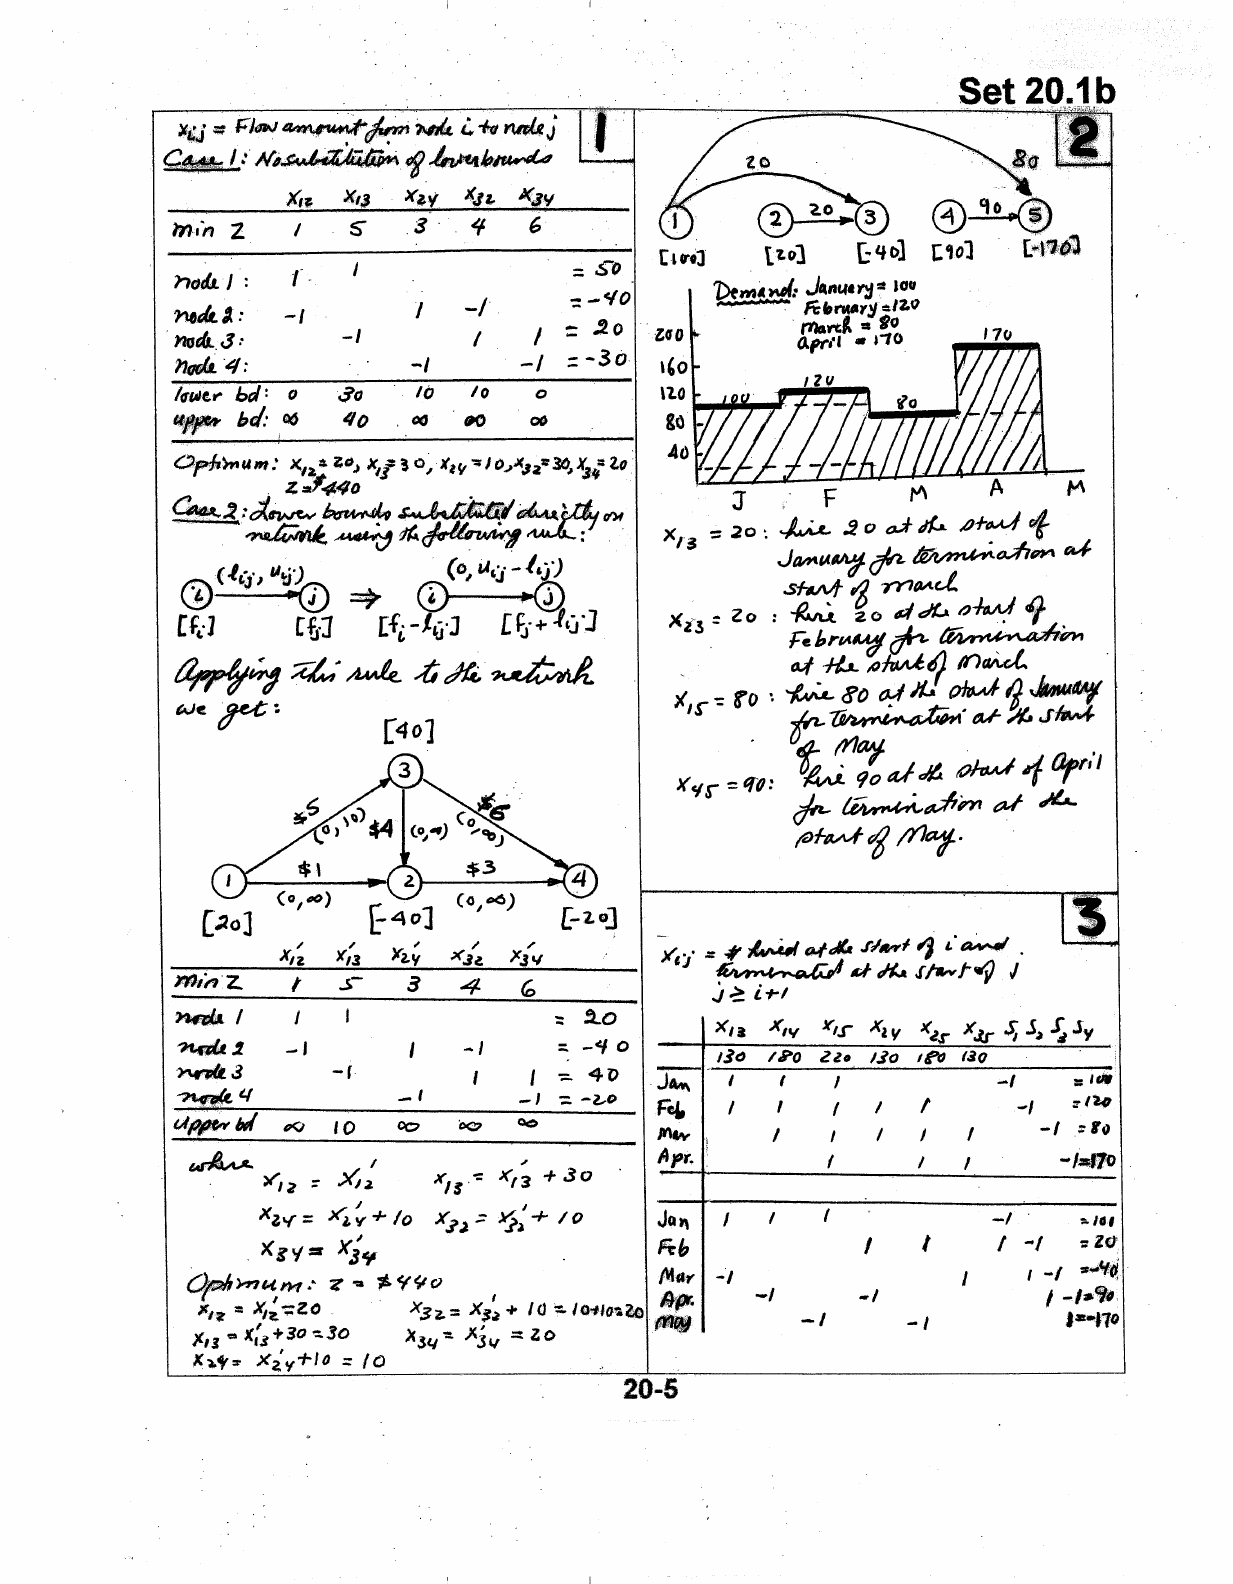 Set 20.1b
1
xij = Flow amount from node i to node j
Case 1: No substitution of lower bounds
x12 x13 x24 x32 x34
min Z 1 5 3 4 6
node 1: 1 1 = 50
node 2: -1 1 -1 = -40
node 3: -1 1 1 = 20
node 4: -1 -1 = -30
lower bd: 0 30 10 10 0
upper bd: ∞ 40 ∞ ∞ ∞
Optimum: x12 = 20, x13 = 30, x24 = 10, x32 = 30, x34 = 20
Z = $440
Case 2: Lower bounds substituted directly on
network using the following rule:
(lij, uij) (0, uij - lij)
i j ⇒ i j
[fi] [fj] [fi - lij] [fj + lij]
Applying this rule to the network
we get:
[40]
3
$5 (0, 10) $4 (0, ∞) $6 (0, ∞)
1 $1 2 $3 4
(0, ∞) (0, ∞)
[20] [-40] [-20]
x'12 x'13 x'24 x'32 x'34
min Z 1 5 3 4 6
node 1 1 1 = 20
node 2 -1 1 -1 = -40
node 3 -1 1 1 = 40
node 4 -1 -1 = -20
upper bd ∞ 10 ∞ ∞ ∞
where
x12 = x'12 x13 = x'13 + 30
x24 = x'24 + 10 x32 = x'32 + 10
x34 = x'34
Optimum: z = $440
x12 = x'12 = 20 x32 = x'32 + 10 = 10+10=20
x13 = x'13 + 30 = 30 x34 = x'34 = 20
x24 = x'24 + 10 = 10
2
20 80
1 2 20 3 4 90 5
[100] [20] [-40] [90] [-170]
Demand: January = 100
February = 120
March = 80
April = 170
200 170
160
120 100 120
80 80
40
J F M A M
x13 = 20 : hire 20 at the start of
January for termination at
start of march
x23 = 20 : hire 20 at the start of
February for termination
at the start of March
x15 = 80 : hire 80 at the start of January
for termination at the start
of May
x45 = 90: hire 90 at the start of April
for termination at the
start of May.
3
xij = # hired at the start of i and
terminated at the start of j
j ≥ i+1
x13 x14 x15 x24 x25 x35 S1 S2 S3 S4
130 180 220 130 180 130
Jan 1 1 1 -1 = 100
Feb 1 1 1 1 1 -1 = 120
Mar 1 1 1 1 1 -1 = 80
Apr. 1 1 1 -1 = 170
Jan 1 1 1 -1 = 100
Feb 1 1 1 -1 = 20
Mar -1 1 1 -1 = -40
Apr. -1 -1 1 -1 = 90
May -1 -1 1 = -170
20-5